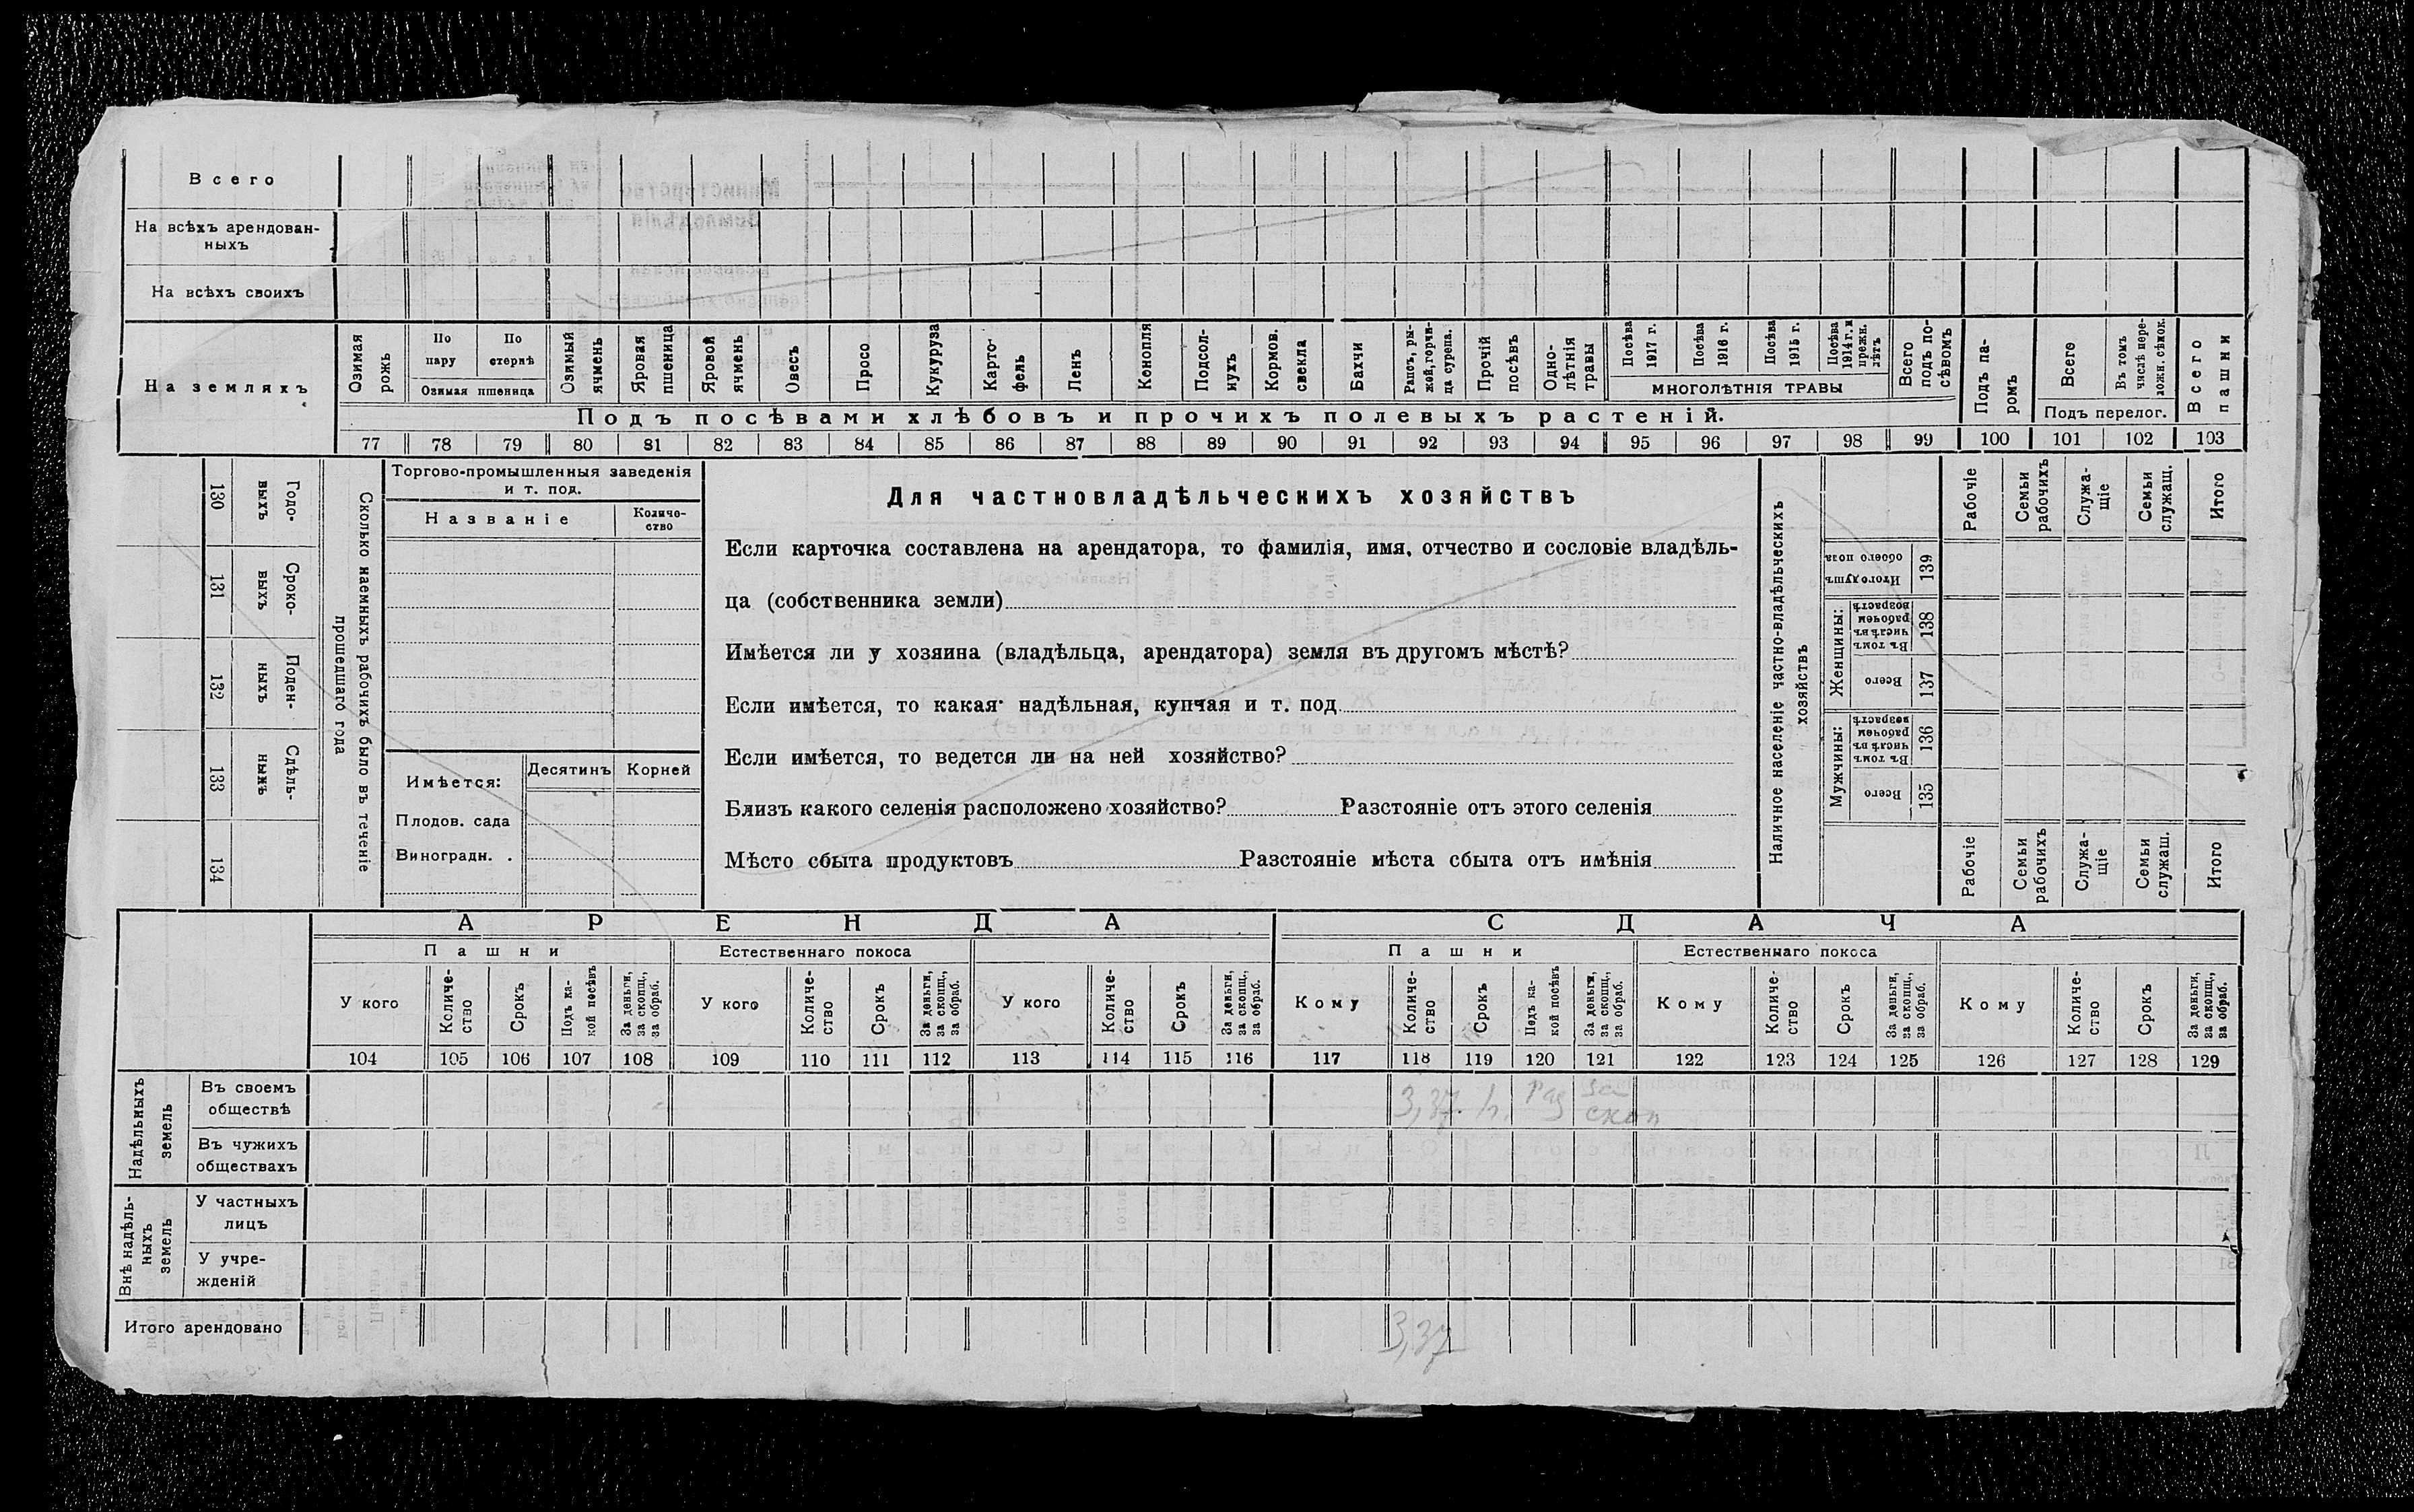 Всего
На всѣхъ арендован-
ныхъ
На всѣхъ своихъ
На земляхъ
Озимая рожь
По пару
По стернѣ
Озимая пшеница
Озимый ячмень
Яровая пшеница
Яровой ячмень
Овесъ
Просо
Кукуруза
Карто-
фель
Ленъ
Конопля
Подсол-
нухъ
Кормов. свекла
Бахчи
Рапсъ, ры-
жей, горчи-
ца сурепа.
Прочій посѣвъ
Одно-
лѣтнія травы
Посѣва 1917 г.
Посѣва 1916 г.
Посѣва 1915 г.
Посѣва 1914 г. и прежн. лѣтъ
МНОГОЛѢТНІЯ ТРАВЫ
Всего подъ по-
сѣвомъ
Подъ па-
ромъ
Всего
Въ томъ числѣ пере-
ложн. сѣнок.
Подъ перелог.
Всего пашни
Подъ посѣвами хлѣбовъ и прочихъ полевыхъ растеній.
77 78 79 80 81 82 83 84 85 86 87 88 89 90 91 92 93 94 95 96 97 98 99 100 101 102 103
130 Годо-
выхъ
131 Сроко-
выхъ
132 Поден-
ныхъ
133 Сдѣль-
ныхъ
134
Сколько наемныхъ рабочихъ было въ теченіе
прошедшаго года
Торгово-промышленныя заведенія
и т. под.
Названіе
Количе-
ство
Имѣется:
Десятинъ
Корней
Плодов. сада
Виноградн. .
Для частновладѣльческихъ хозяйствъ
Если карточка составлена на арендатора, то фамилія, имя, отчество и сословіе владѣль-
ца (собственника земли)
Имѣется ли у хозяина (владѣльца, арендатора) земля въ другомъ мѣстѣ?
Если имѣется, то какая: надѣльная, купчая и т. под.
Если имѣется, то ведется ли на ней хозяйство?
Близъ какого селенія расположено хозяйство? Разстояніе отъ этого селенія
Мѣсто сбыта продуктовъ Разстояніе мѣста сбыта отъ имѣнія
Наличное населеніе частно-владѣльческихъ
хозяйствъ
Рабочіе
Семьи рабочихъ
Служа-
щіе
Семьи служащ.
Итого
Итого душъ обоего пола 139
Женщины:
Въ томъ числѣ въ рабочемъ возрастѣ 138
Всего 137
Мужчины:
Въ томъ числѣ въ рабочемъ возрастѣ 136
Всего 135
Рабочіе
Семьи рабочихъ
Служа-
щіе
Семьи служащ.
Итого
АРЕНДА
СДАЧА
Пашни
Естественнаго покоса
Пашни
Естественнаго покоса
У кого
Количе-
ство
Срокъ
Подъ ка-
кой посѣвъ
За деньги, за скопщ., за обраб.
У кого
Количе-
ство
Срокъ
За деньги, за скопщ., за обраб.
У кого
Количе-
ство
Срокъ
За деньги, за скопщ., за обраб.
Кому
Количе-
ство
Срокъ
Подъ ка-
кой посѣвъ
За деньги, за скопщ., за обраб.
Кому
Количе-
ство
Срокъ
За деньги, за скопщ., за обраб.
Кому
Количе-
ство
Срокъ
За деньги, за скопщ., за обраб.
104 105 106 107 108 109 110 111 112 113 114 115 116 117 118 119 120 121 122 123 124 125 126 127 128 129
Надѣльныхъ земель
Въ своемъ
обществѣ
3,37
за скоп
Въ чужихъ
обществахъ
Внѣ надѣль-
ныхъ земель
У частныхъ
лицъ
У учре-
жденій
Итого арендовано
3,37